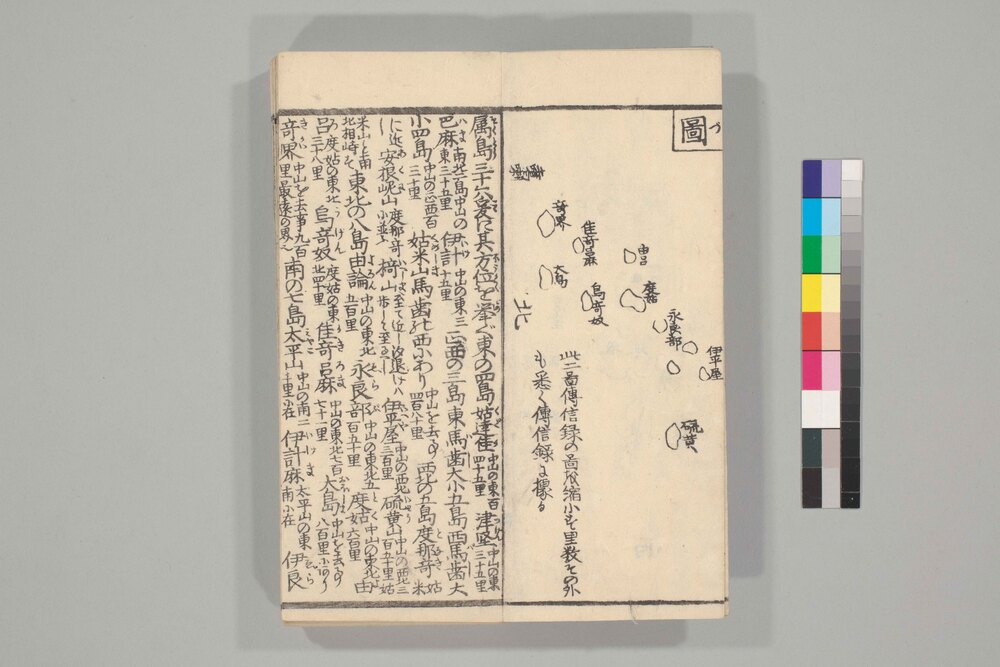 圖
奇界
佳奇呂麻
大島
烏奇奴
由呂
度姑
永良部
伊平屋
硫黄
北
此圖傳信録の圖を縮小す里数その外
も悉く傳信録に據る
属島三十六爰に其方位を挙ぐ東の四島姑達佳中山の東百四十五里 津堅中山の東三十五里
巴麻南北二島中山の東三十五里 伊計中山の東三十五里 正西の三島 東馬歯大小五島 西馬歯大
小四島中山の正西百三十里 姑米山馬歯の西にあり中山を去る事四百八十里 西北の五島度那奇姑米
に近し 安根呢山度那奇に並ぶ 椅山 伊平屋中山の西北三百里 硫黄山中山の西北三百五十里姑
米山と南北相峙す 東北の八島由論中山の東北五百里 永良部中山の東北五百五十里 度姑中山の東北六百里 由
呂度姑の東北三十八里 烏奇奴度姑の東北四十里 佳奇呂麻中山の東北七百七十一里 大島中山を去る事八百里
奇界中山を去事九百里最遠の界 南の七島太平山中山の南二千里に在 伊計麻太平山の東南に在 伊良